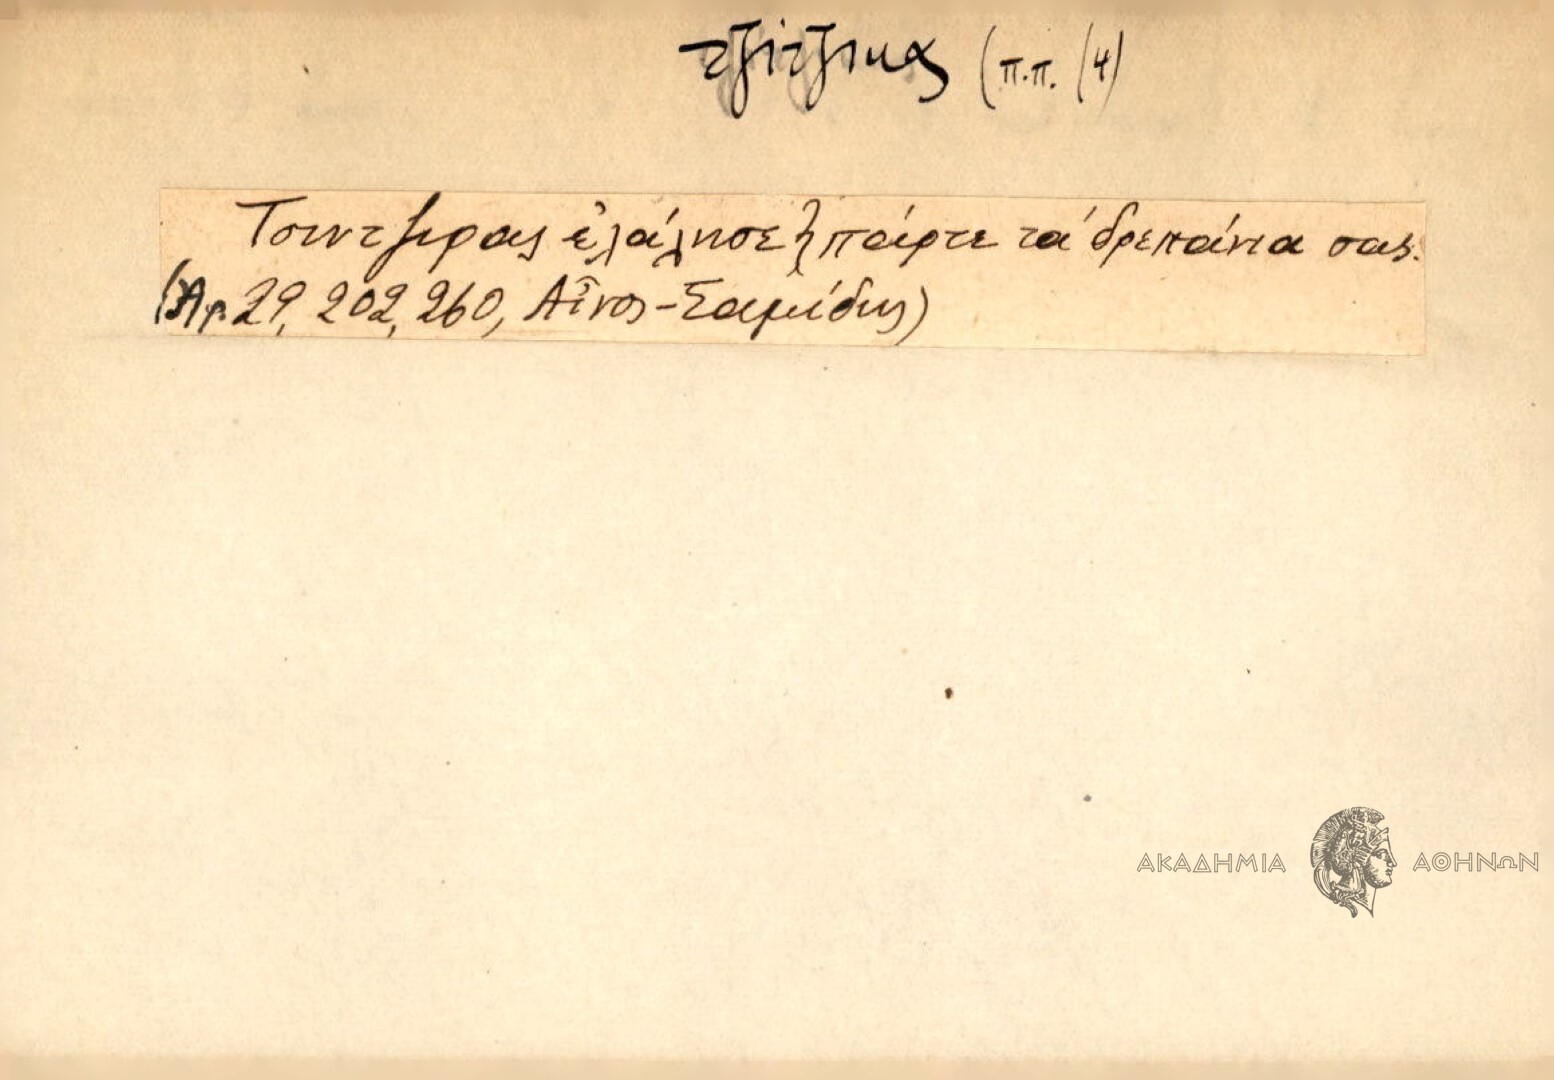 τζίτζικας (π.π. /4)
Τσιντζιρας ἐλάλησε ϗ πάρτε τά δρεπάνια σας.
(Αρ. 29, 202, 260, Αἶνος-Σαμίδης)
ΑΚΑΔΗΜΙΑ ΑΘΗΝΩΝ